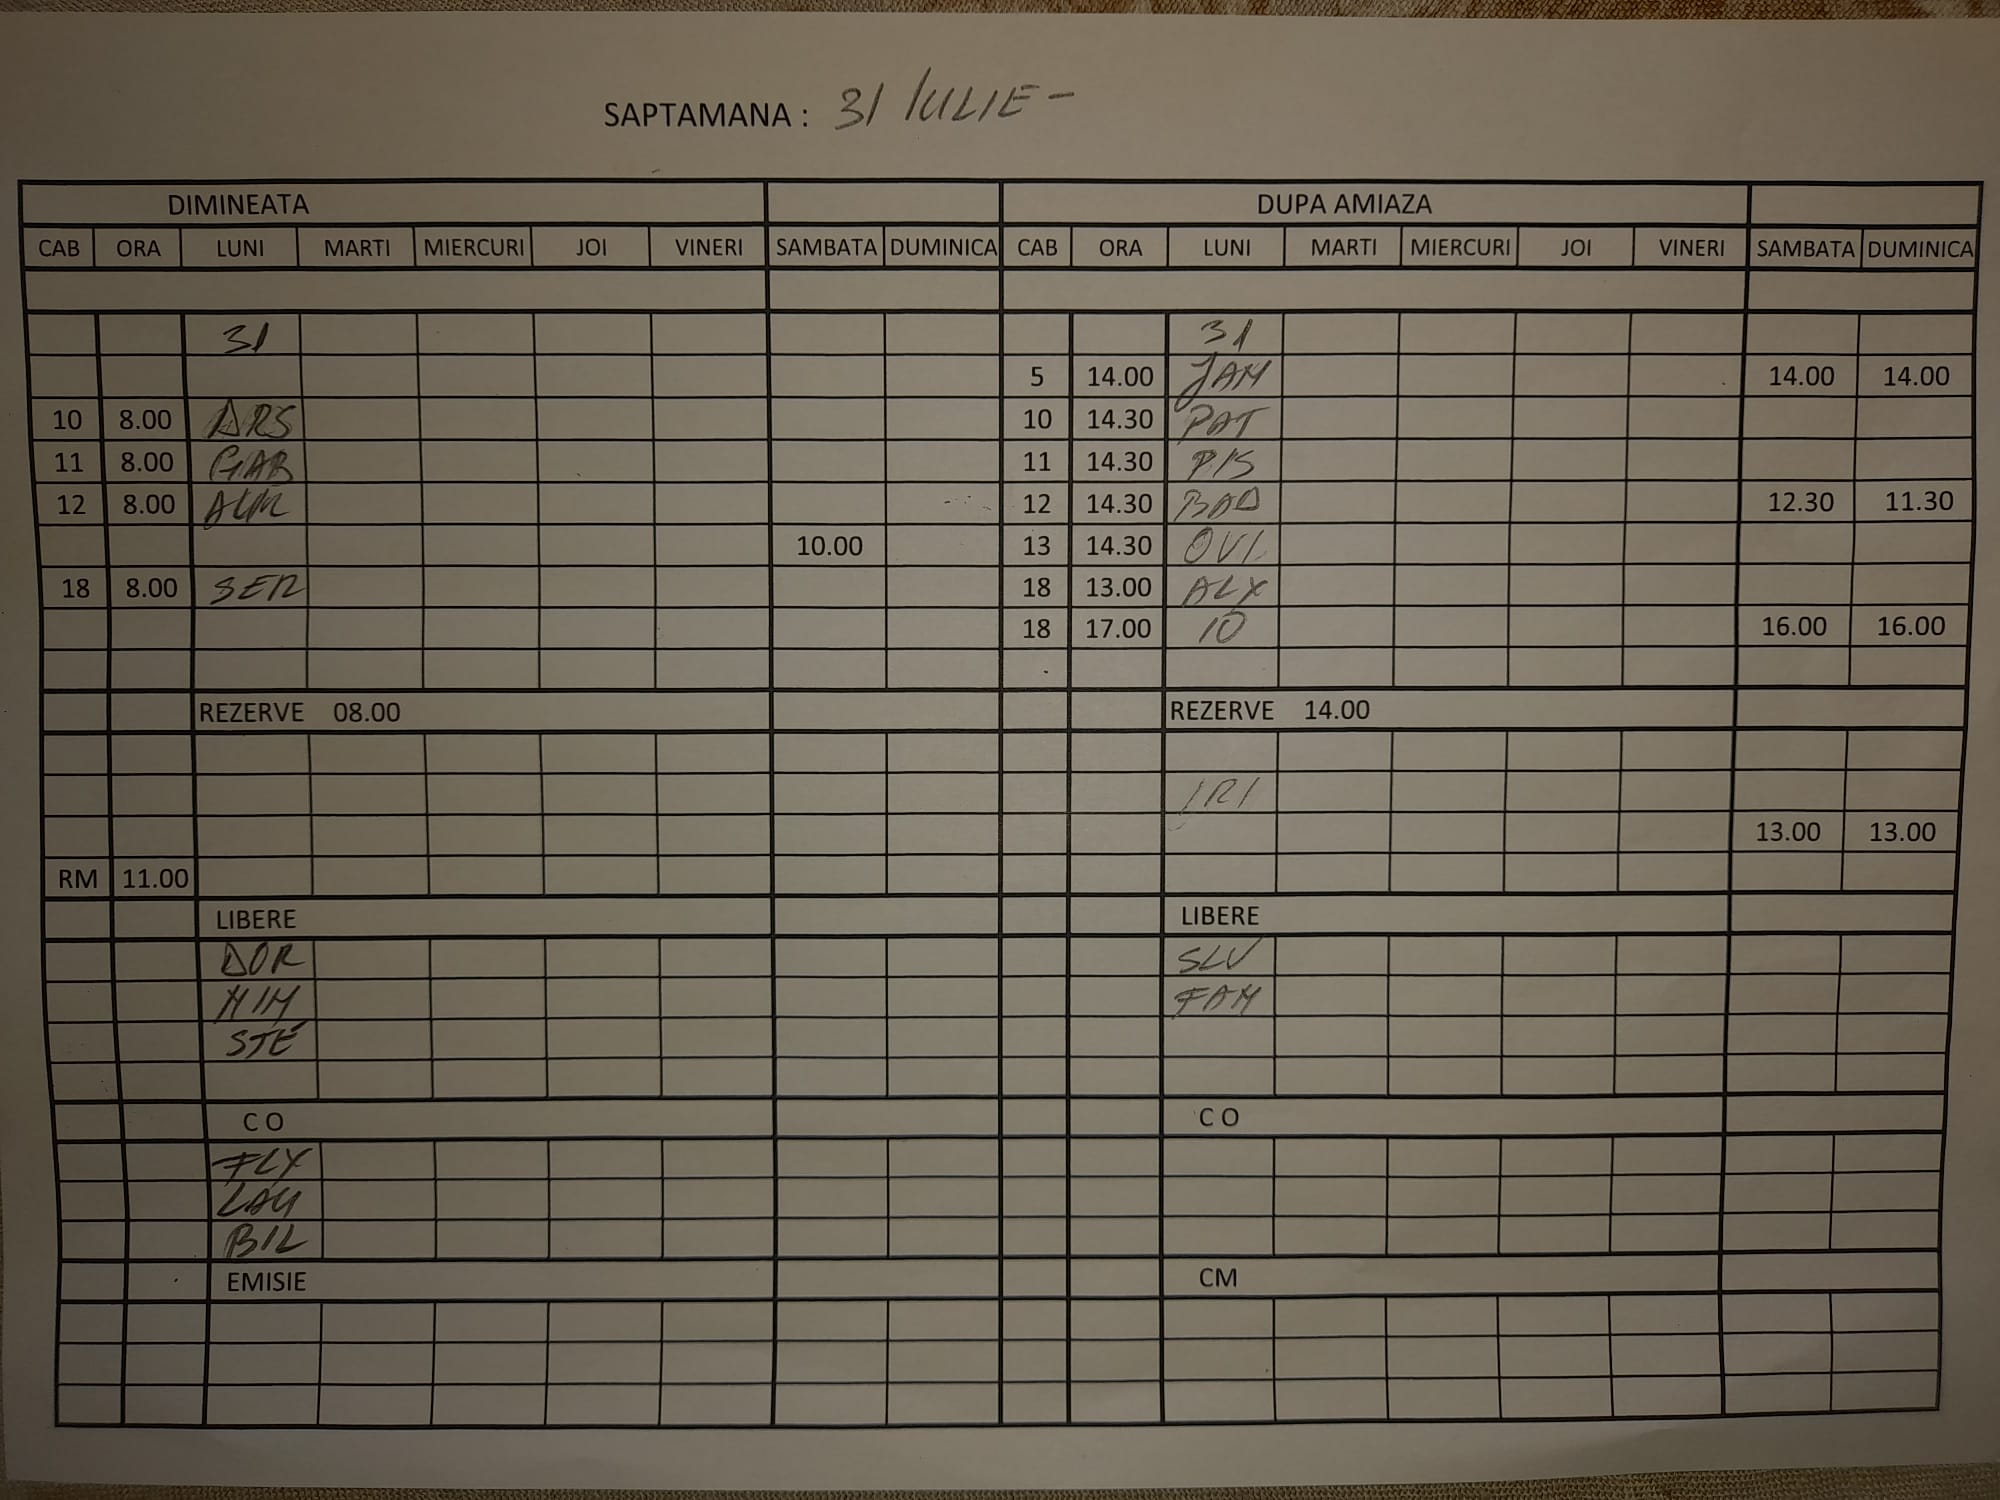 SAPTAMANA : 31 IULIE -
DIMINEATA DUPA AMIAZA
CAB ORA LUNI MARTI MIERCURI JOI VINERI SAMBATA DUMINICA CAB ORA LUNI MARTI MIERCURI JOI VINERI SAMBATA DUMINICA
31 31
5 14.00 JAM 14.00 14.00
10 8.00 ARS 10 14.30 PAT
11 8.00 GAB 11 14.30 PIS
12 8.00 12 14.30 BAD 12.30 11.30
10.00 13 14.30 OVI
18 8.00 SER 18 13.00 ALX
18 17.00 10 16.00 16.00
REZERVE 08.00 REZERVE 14.00
IRI
13.00 13.00
RM 11.00
LIBERE LIBERE
DOR SLV
MIM FAM
STE
C O C O
FLY
LAU
BIL
EMISIE CM